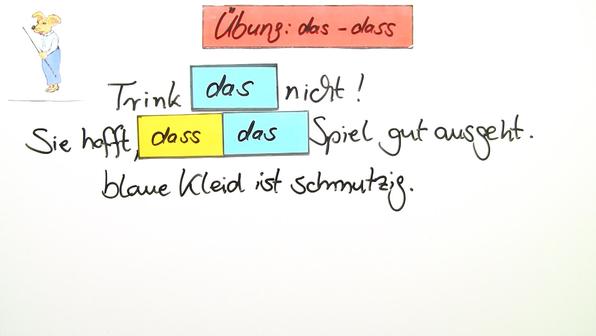 Übung: das - dass
Trink das nicht!
Sie hofft, dass das Spiel gut ausgeht.
blaue Kleid ist schmutzig.